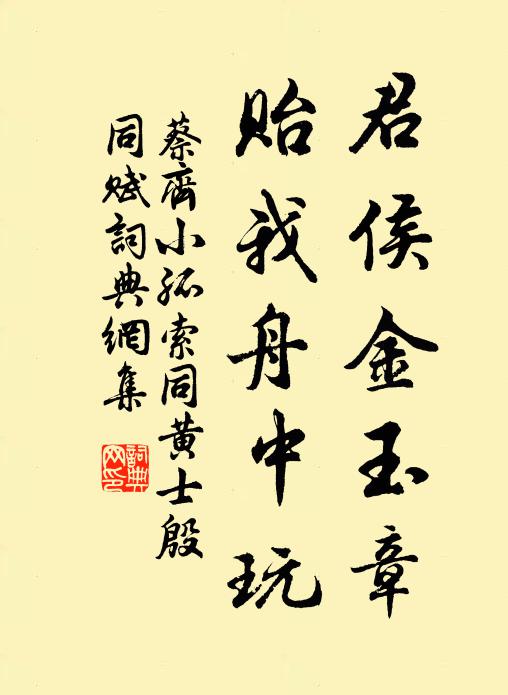 君侯金玉章
貽我舟中玩
蔡齊小孤索同黄士殷
同賦詞典網集
詞典
网印